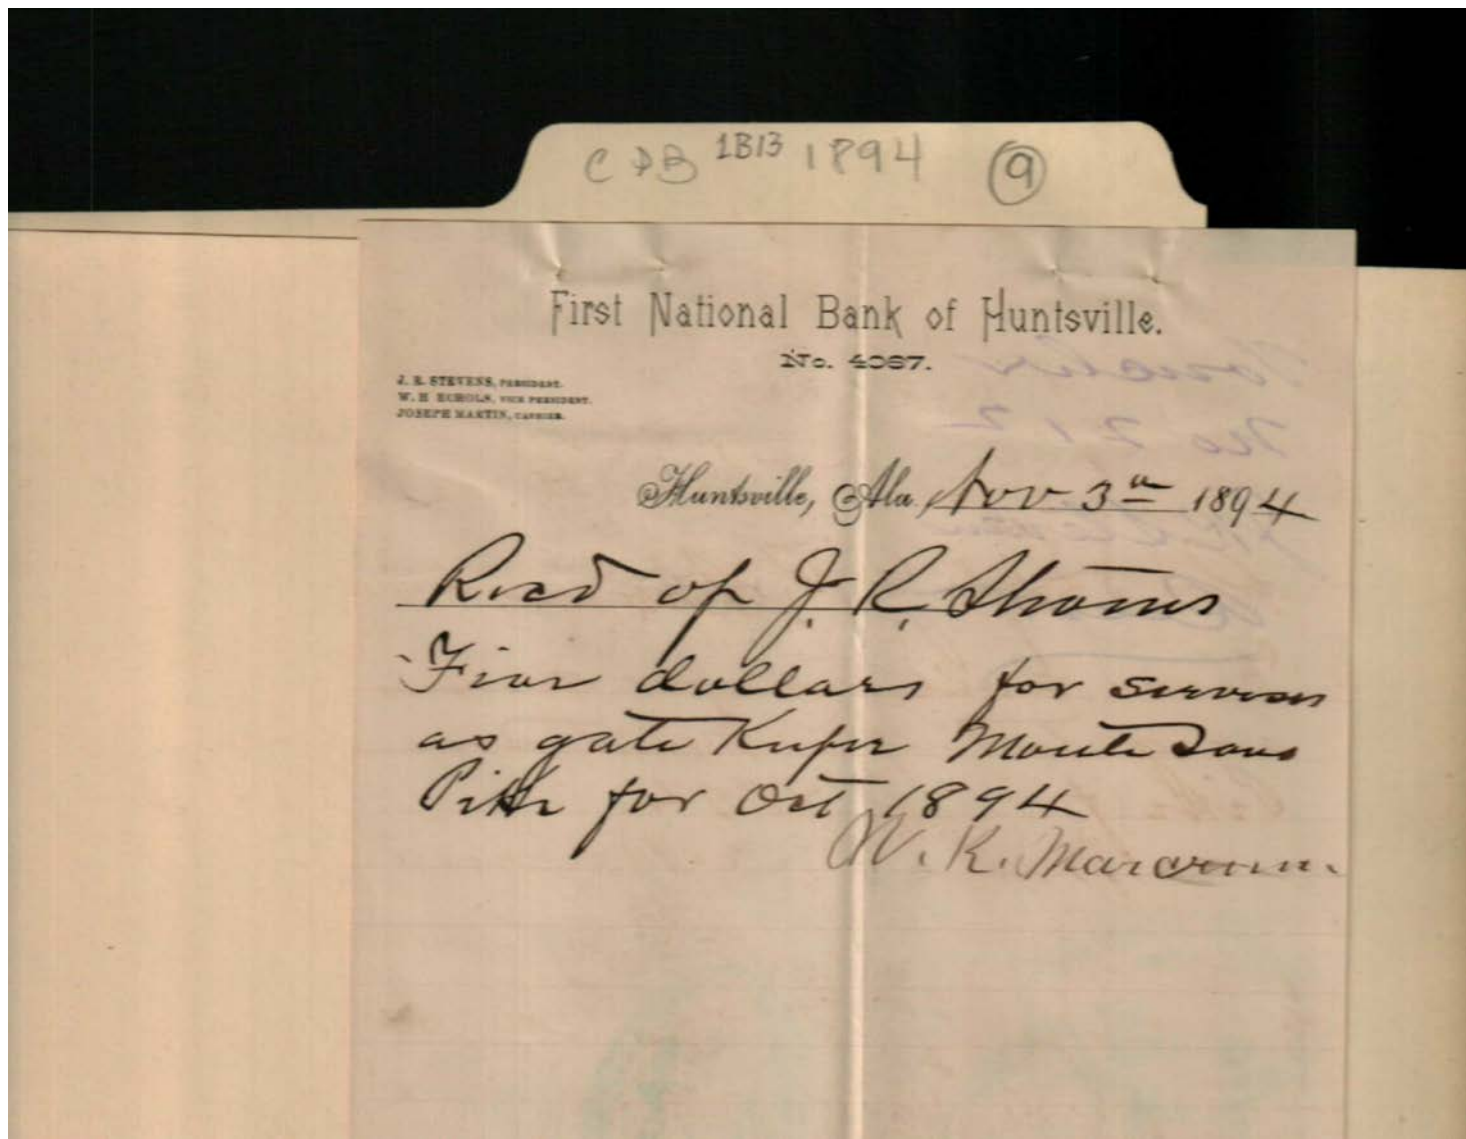 CDB 1B13 1894 9
First National Bank of Huntsville.
No. 4067.
J. R. STEVENS, PRESIDENT.
W. H ECHOLS, VICE PRESIDENT.
JOSEPH MARTIN, CASHIER.
Huntsville, Ala. Nov. 3rd 1894
Recd of J. R. Stevens
Five dollars for services
as gate Keeper Monte Sano
Pike for Oct 1894
W. K. Marcum.
Voucher
No 212